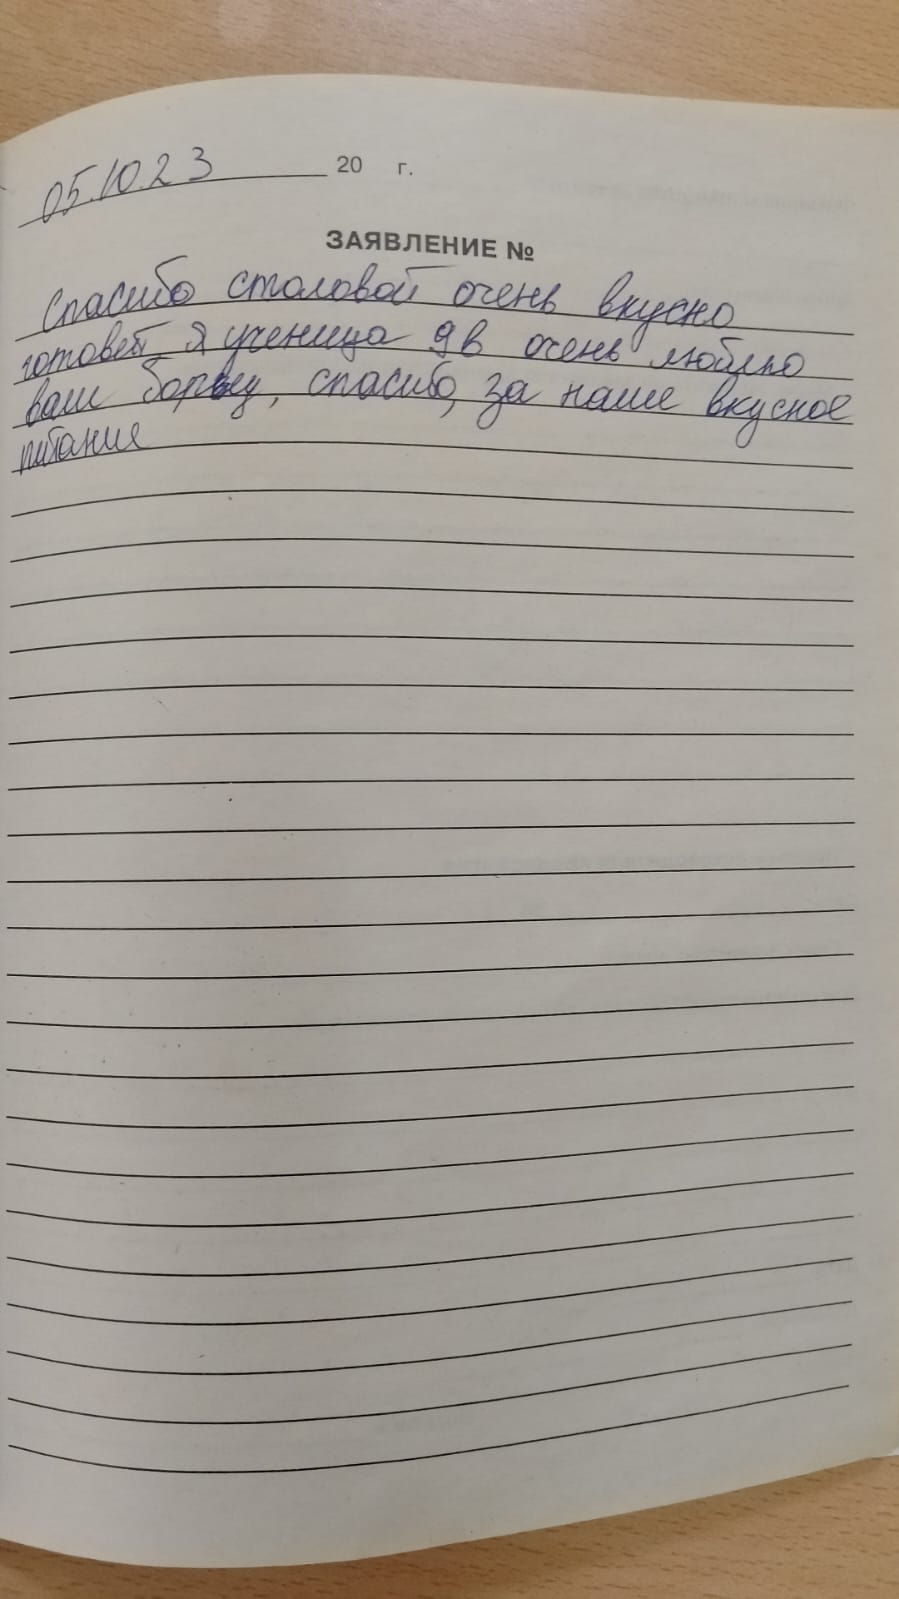 05.10.23 20 г.
ЗАЯВЛЕНИЕ №
Спасибо столовой очень вкусно
готовет я ученица 9 в очень люблю
ваш борщ, спасибо, за наше вкусное
питание